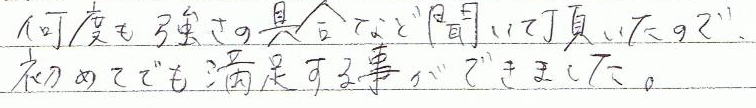 何度も強さの具合など聞いて頂いたので、
初めてでも満足する事ができました。